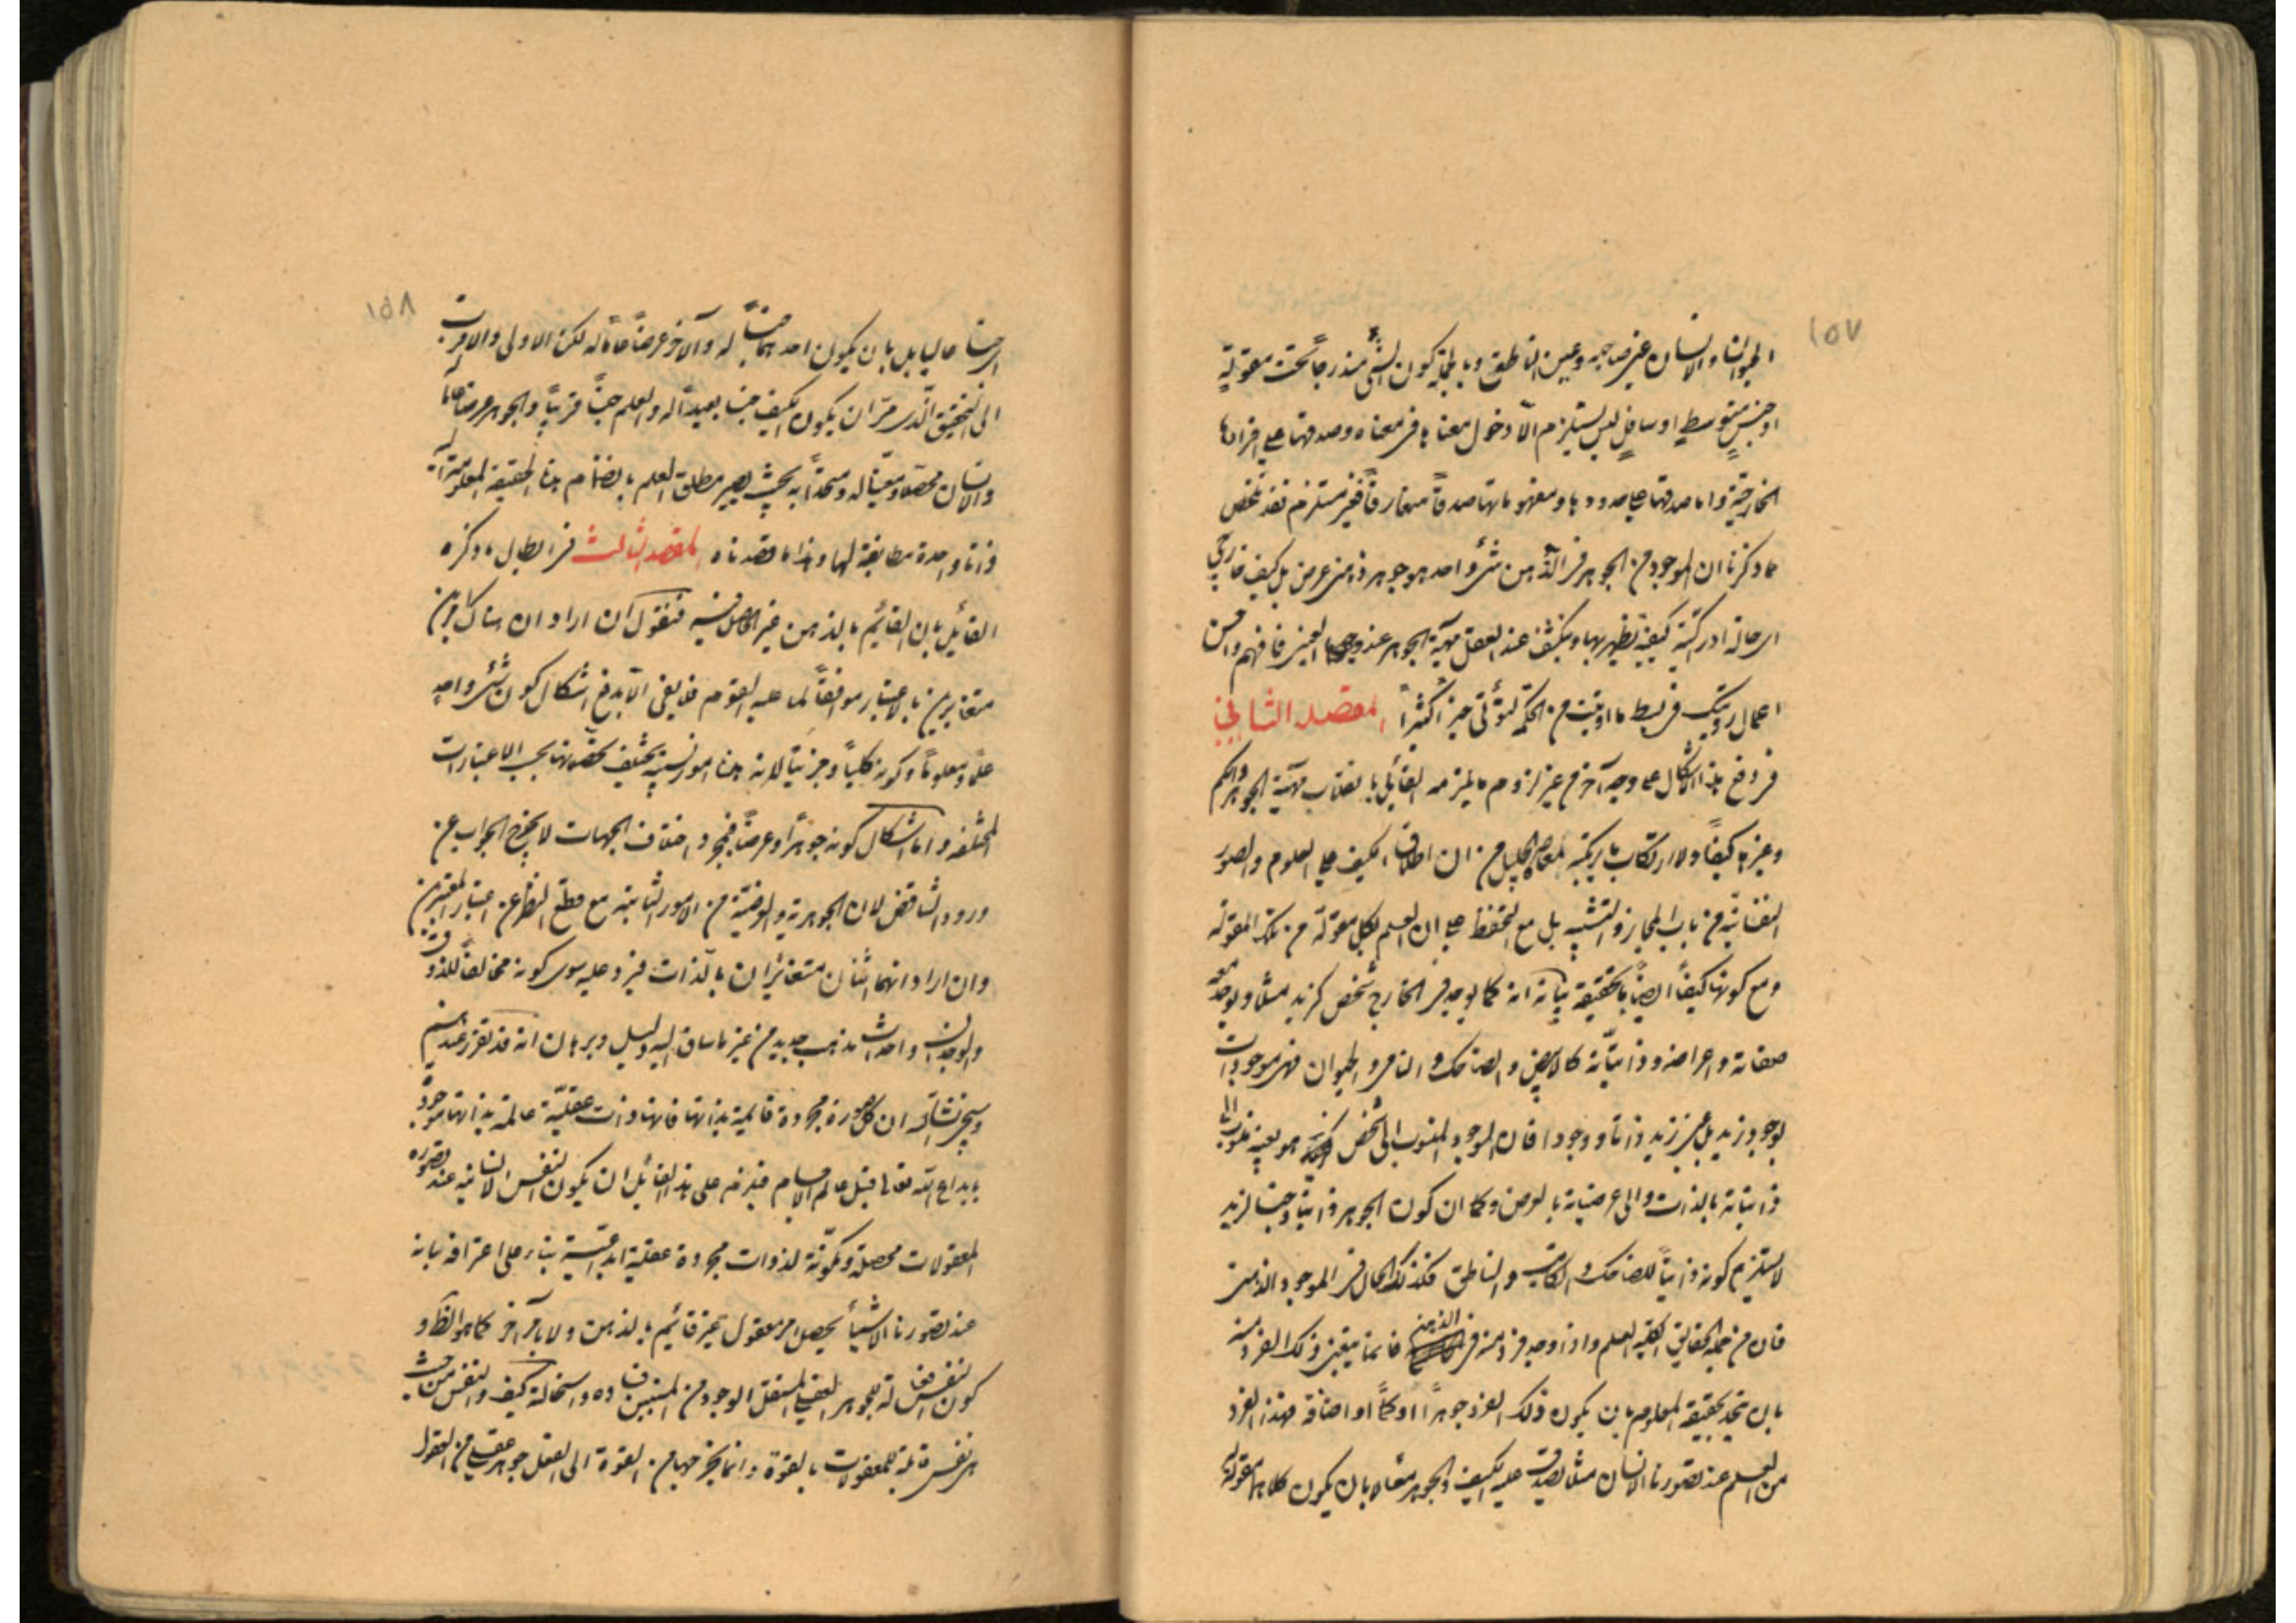 ١٥٧
الحيوان والانسان عين صاحبه وعين الناطق وبالجملة كون الشئ مندرجاً تحت مقولة
او جنس متوسط او سافل ليس يستلزم الا دخول معناها فى معناه وصدقها على افرادها
الخارجية واما صدقها على حدودها ومفهوماتها صدقاً متعارفاً فغير مستلزم فقد تلخص
مما ذكرنا ان الموجود من الجوهر فى الذهن شئ واحد هو جوهر ذهنى عرض بل كيف خارجى
اى حالة ادراكية كيفية يظهر بها وينكشف عند العقل مهية الجوهر عند وجودها العينى فافهم واحسن
اعمال رويتك فى بسط ما اوتيت من الحكمة لتؤتى خيراً كثيراً المقصد الثانى
فى دفع هذا الاشكال على وجه آخر من غير لزوم ما يلزمه القائل بانقلاب مهية الجوهر والكم
وغيرها كيفاً ولا ارتكاب ما يرتكبه المعاصر الجليل من ان اطلاق الكيف على العلوم والصور
النفسانية من باب المجاز والتشبيه بل مع التحفظ على ان العلم بكل مقولة من تلك المقولة
ومع كونها كيفاً ايضاً بالحقيقة بيانه انه كما يوجد فى الخارج شخص كزيد مثلا ويوجد معه
صفاته واعراضه وذاتياته كالابيض والضاحك والنامى والحيوان فهى موجودات
بوجود زيد بل عين زيد ذاتا ووجودا فان الوجود المنسوب الى الشخص هو بعينه منسوب الى
ذاتياته بالذات والى عرضياته بالعرض وكما ان كون الجوهر ذاتيا وجنسا لزيد
لا يستلزم كونه ذاتياً للضاحك والكاتب والناطق فكذلك الحال فى الموجود الذهنى
فان من جملة الحقايق الكلية العلم واذا وجد فرد منه فى الذهن فانما يتعين ذلك الفرد منه
بان يتحد بحقيقة المعلوم بان يكون ذلك الفرد جوهراً او كماً او اضافة فهذا الفرد
من العلم عند تصورنا الانسان مثلا يصدق عليه الكيف والجوهر معا لا بان يكون كلاهما مقولة
١٥٨
اى جنسا عاليا بل بان يكون احدهما جنساً له والآخر عرضاً عاماً له لكن الاولى والاقرب
الى التحقيق الذى مر ان يكون الكيف جنسا بعيداً له والعلم جنساً قريباً والجوهر عرضا عاما له
والانسان محصلا ومعيناً له ومتحداً به بحيث يصير مطلق العلم بانضمام هذه الحقيقة المعلومية اليه
ذاتا واحدة مطابقة لها وهذا ما قصدناه المقصد الثالث فى ابطال ما ذكره
القائل بان القائم بالذهن غير الحاصل فيه فنقول ان اراد ان هناك امرين
متغايرين بالاعتبار موافقاً لما عليه القوم فلا يفى الا بدفع اشكال كون شئ واحد
علماً ومعلوماً وكونه كلياً وجزئيا لان هذه امور نسبية يختلف تحققها بحسب الاعتبارات
المختلفة واما اشكال كونه جوهراً وعرضاً فمجرد اختلاف الجهات لا يخرج الجواب عن
ورود التناقض لان الجوهرية والعرضية من الامور الثابتة مع قطع النظر عن اعتبار المعتبرين
وان اراد انهما اثنان متغايران بالذات فيرد عليه سوى كونه مخالفاً للذوق
والوجدان واحداث مذهب جديد من غير ما ساق اليه دليل وبرهان انه قد تقرر عندهم
وسيجئ انشاء الله ان كل صورة مجردة قائمة بذاتها فانها ذات عقلية عالمة بذاتها موجودة
بابداع الله تعالى قبل عالم الاجسام فيلزم على هذا القائل ان يكون النفس الانسانية عند تصوره
المعقولات محصلة ومكونة لذوات مجردة عقلية ابداعية بناء على اعترافه بانه
عند تصورنا الاشياء يحصل امر معقول غير قائم بالذهن ولا بامر آخر كما هو الظاهر و
كون النفس فاعلة للجوهر العقلى المستقل الوجود من المستبين فساده واستحالته كيف والنفس من حيث
هى نفس قابلة للمعقولات بالقوة وانما يخرجها من القوة الى الفعل جوهر عقلى من العقول